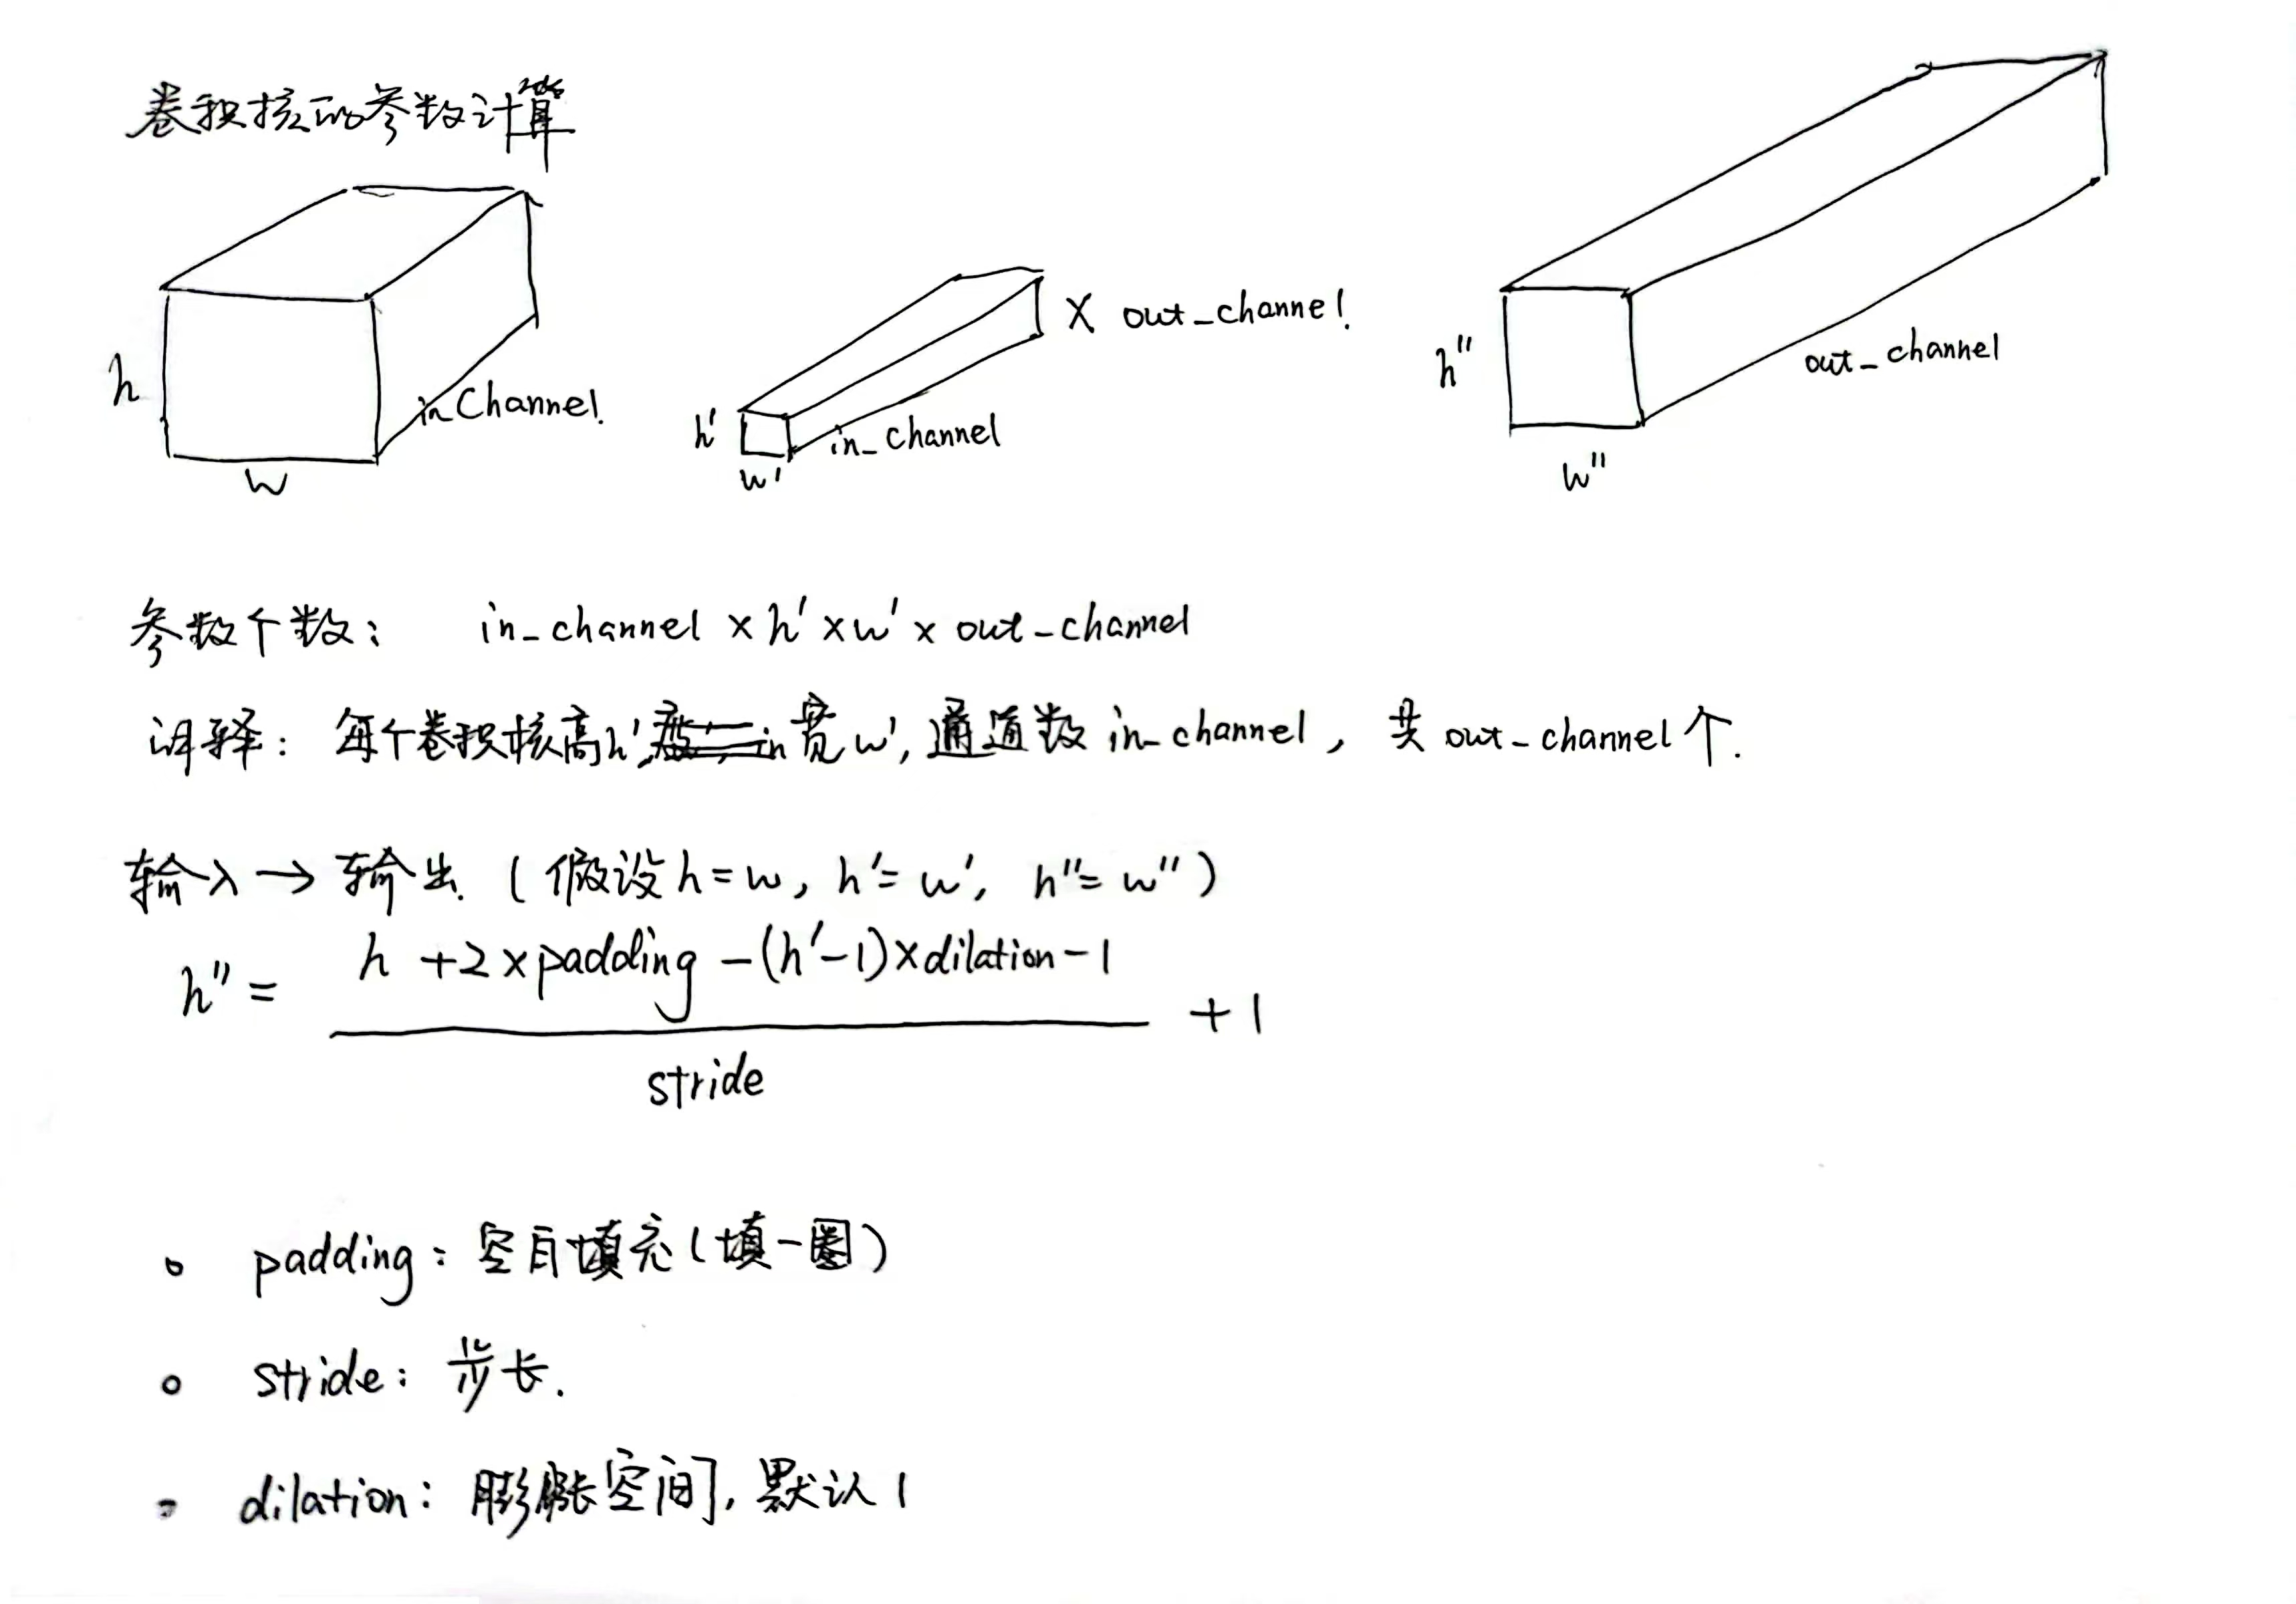 卷积核的参数计算
h
w
in_Channel
h'
w'
in_channel
X out_channel
h"
w"
out_channel
参数个数: in_channel × h' × w' × out_channel
解释: 每个卷积核高h', 宽w', 通道数in_channel, 共out_channel个.
输入→输出. (假设h=w, h'=w', h"=w")
h" = h +2×padding -(h'-1)×dilation-1
stride
+1
padding: 空白填充(填一圈)
stride: 步长.
dilation: 膨胀空间, 默认1